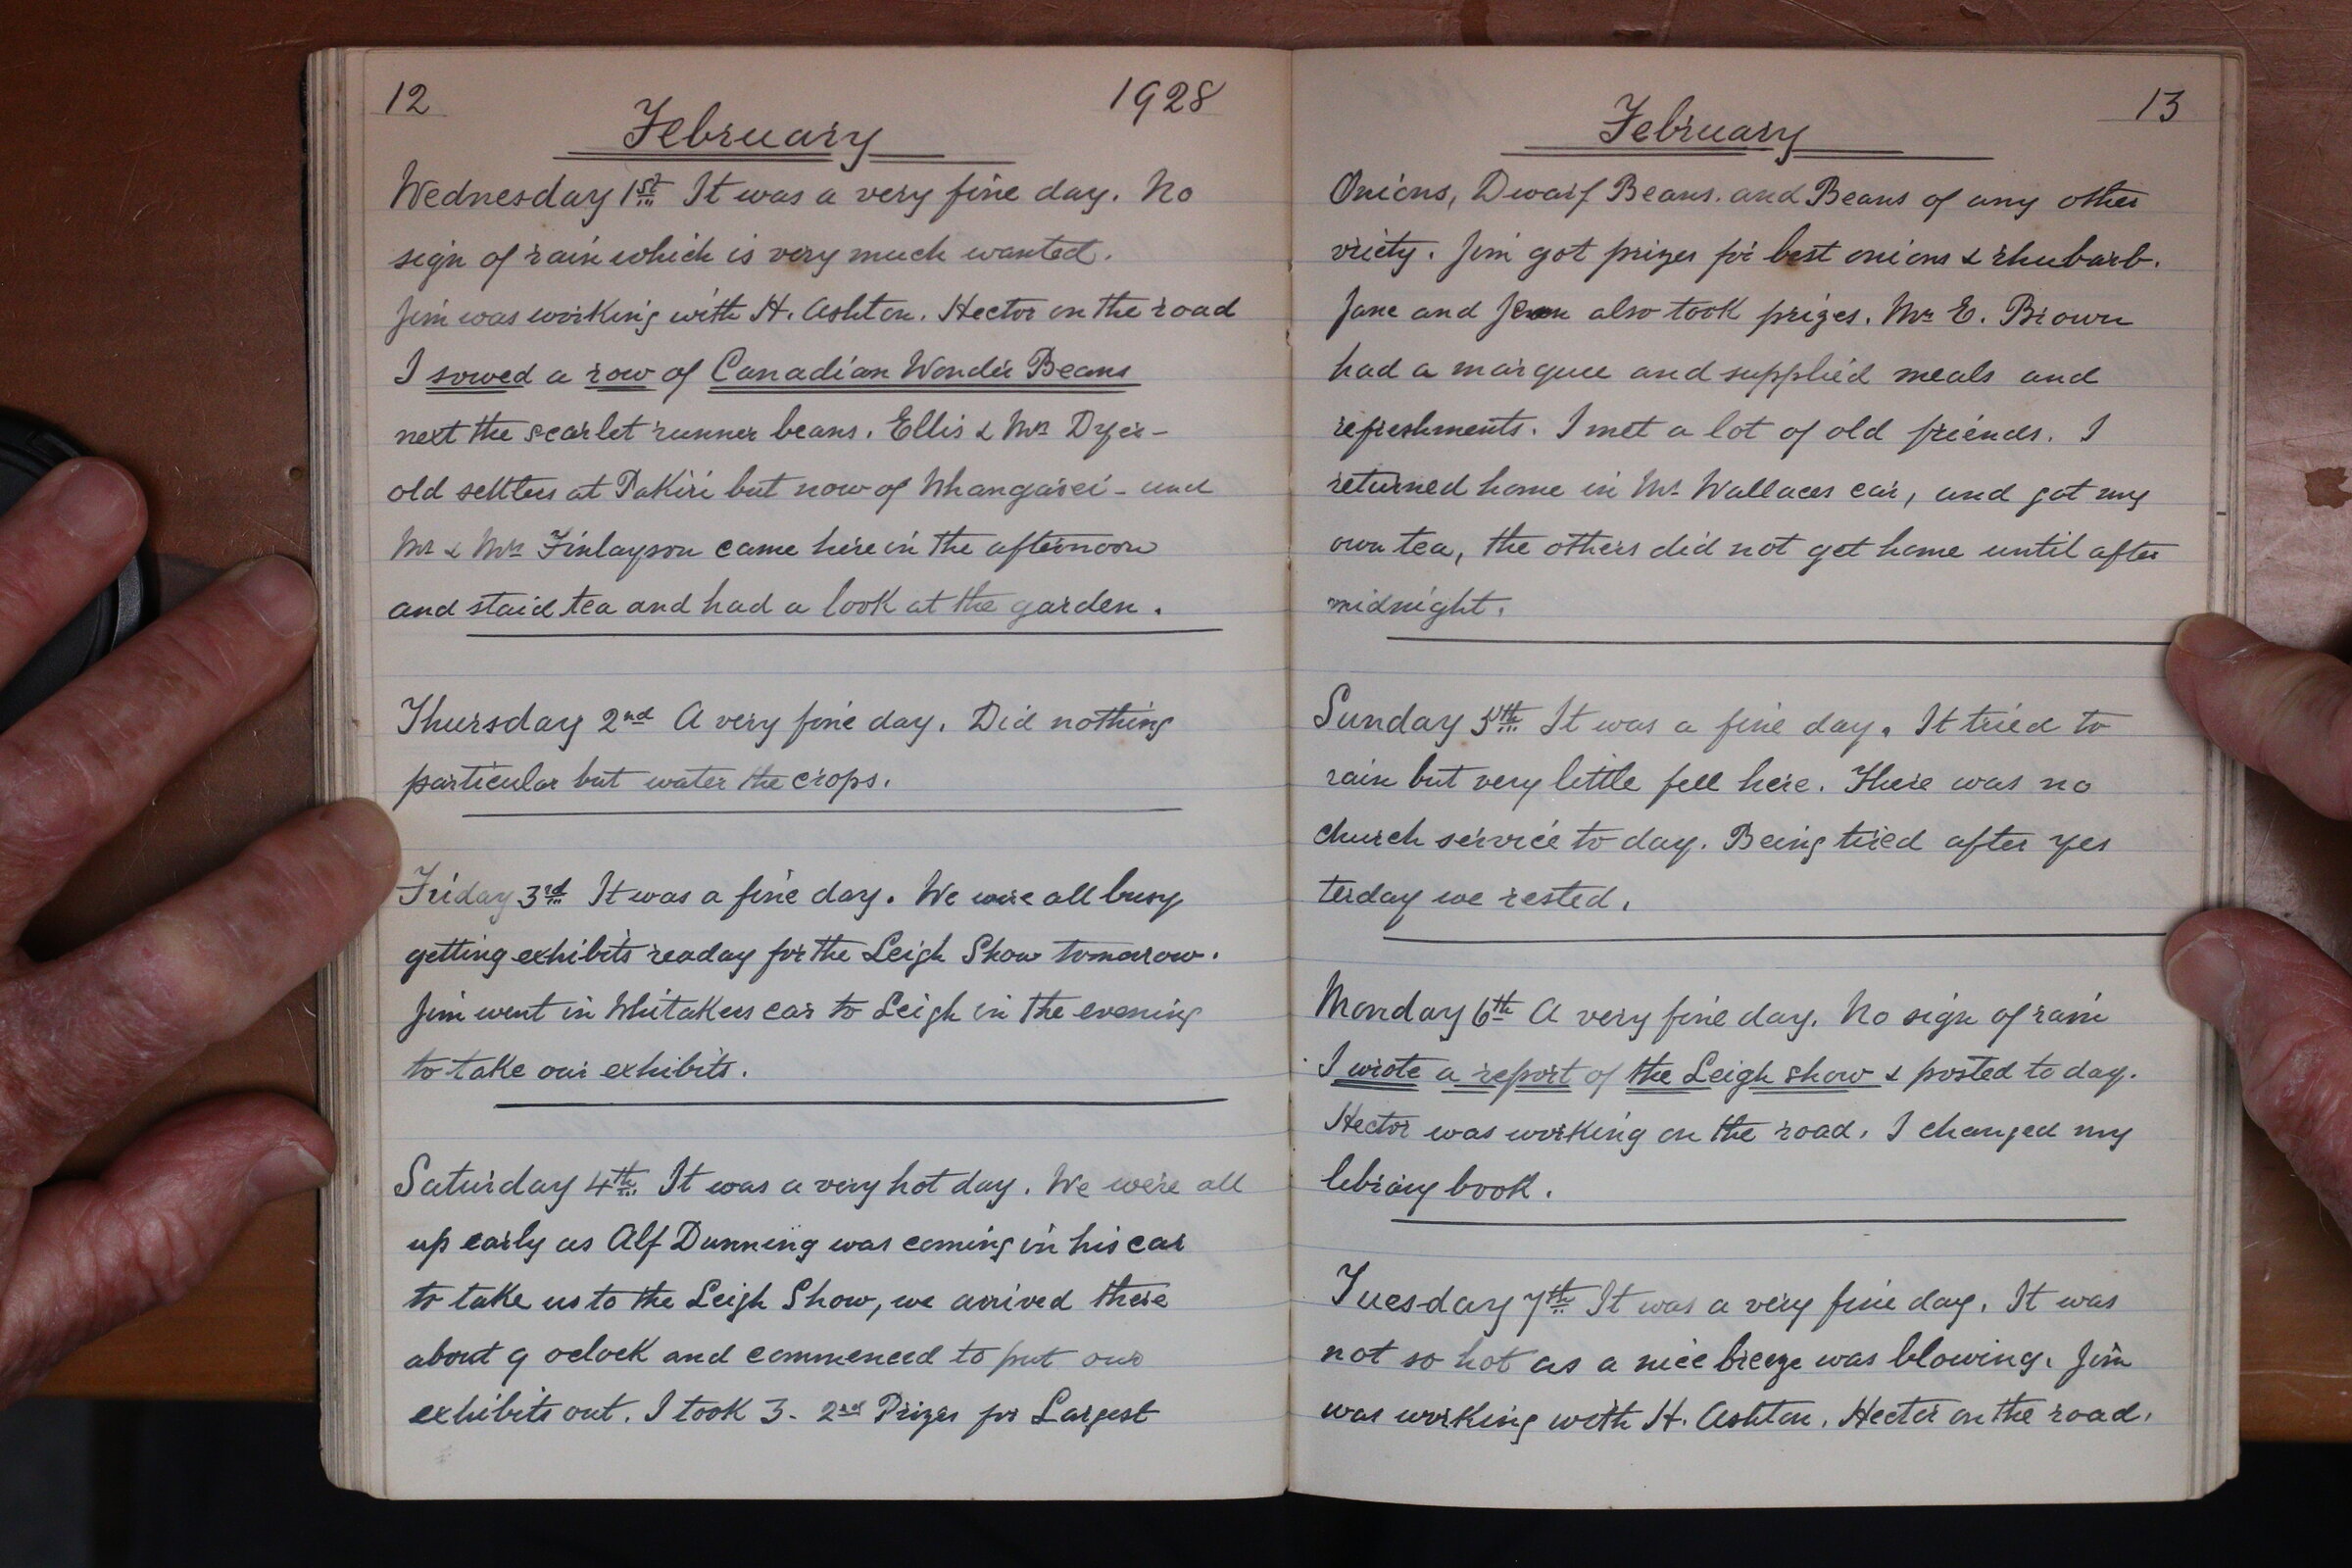 12 1928
February
Wednesday 1st It was a very fine day. No
sign of rain which is very much wanted.
Jim was working with H. Ashton. Hector on the road
I sowed a row of Canadian Wonder Beans
next the scarlet runner beans. Ellis & Mrs Dyer -
old settlers at Pakiri but now of Whangarei - and
Mr & Mrs Finlayson came here in the afternoon
and staid tea and had a look at the garden.
Thursday 2nd A very fine day. Did nothing
particular but water the crops.
Friday 3rd It was a fine day. We were all busy
getting exhibits readay for the Leigh Show tomorrow.
Jim went in Whitakers car to Leigh in the evening
to take our exhibits.
Saturday 4th It was a very hot day. We were all
up early as Alf Dunning was coming in his car
to take us to the Leigh Show, we arrived there
about 9 oclock and commenced to put our
exhibits out. I took 3 - 2nd Prizes for Largest
13
February
Onions, Dwarf Beans. and Beans of any other
vriety. Jim got prizes for best onions & rhubarb.
Jane and also took prizes. Mr E. Brown
had a marquee and supplied meals and
refreshments. I met a lot of old friends. I
returned home in Mr Wallaces car, and got my
own tea, the others did not get home until after
midnight.
Sunday 5th It was a fine day. It tried to
rain but very little fell here. There was no
church service to day. Being tired after yes
terday we rested.
Monday 6th A very fine day. No sign of rain
I wrote a report of the Leigh show & posted to day.
Hector was working on the road. I changed my
library book.
Tuesday 7th It was a very fine day. It was
not so hot as a nice breeze was blowing. Jim
was working with H. Ashton. Hector on the road.